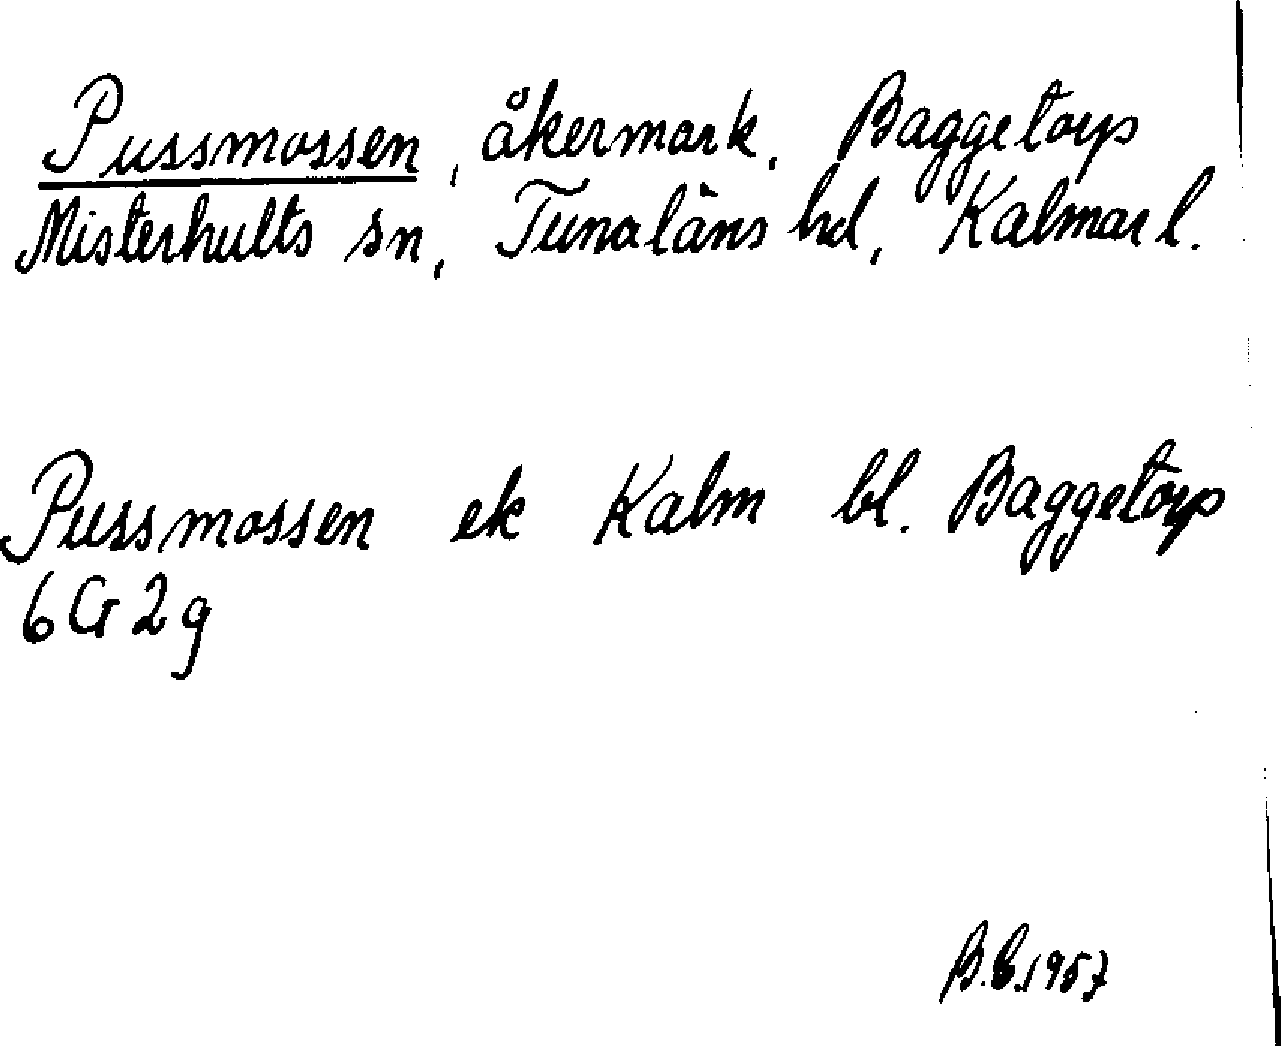 Pussmossen, åkermark, Baggetorp
Misterhults sn, Tunaläns hd, Kalmar l.
Pussmossen ek Kalm bl. Baggetorp
6 G 2 g
B.E.1957